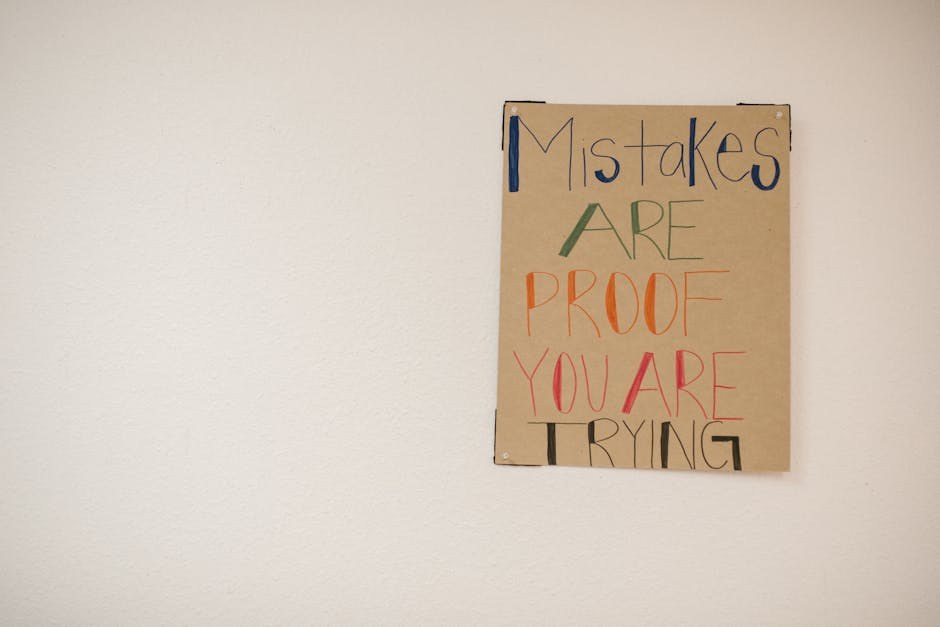 Mistakes
ARE
PROOF
YOU ARE
TRYING